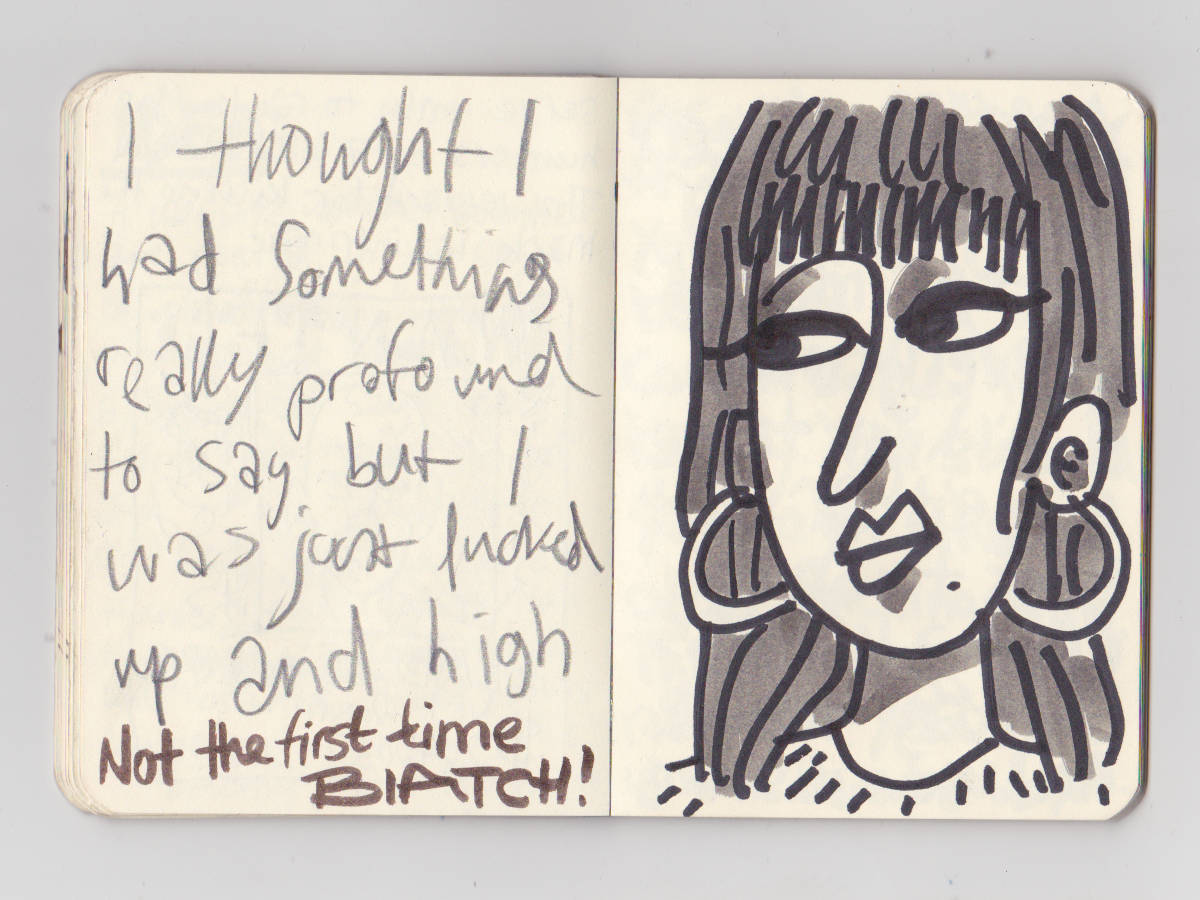 I thought I
had something
really profound
to say but I
was just fucked
up and high
Not the first time
BIATCH!